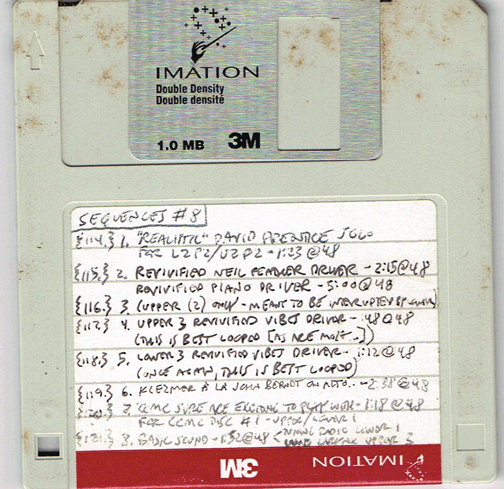 IMATION
Double Density
Double densité
1.0 MB 3M
SEQUENCES #8
{114.} 1. "REALISTIC" DAVID PRENTICE SOLO
FOR L2P2/U2P2 - 1:23 @ 48
{115.} 2. REVIVIFIED NEIL FEATHER DRIVER - 2:15 @ 48
REVIVIFIED PIANO DRIVER - 5:00 @ 48
{116.} 3. (UPPER (2) ONLY - MEANT TO BE INTERRUPTED BY LOWER)
{117.} 4. UPPER 3 REVIVIFIED VIBES DRIVER - :48 @ 48
(THIS IS BEST LOOPED [AS ARE MOST..])
{118.} 5. LOWER 3 REVIVIFIED VIBES DRIVER - 1:12 @ 48
(ONCE AGAIN, THIS IS BEST LOOPED)
{119.} 6. KLEZMER A LA JOHN BERNDT ON ALTO.. - 2:38 @ 48
{120.} 7. CCMC SURE ARE EXCITING TO PLAY WITH - 1:18 @ 48
FOR CCMC DISC #1 - UPPER/LOWER 1
{121.} 8. BASIC SOUND - 1:52 @ 48 RADIO LOWER 1
UPPER 3
IMATION
3M